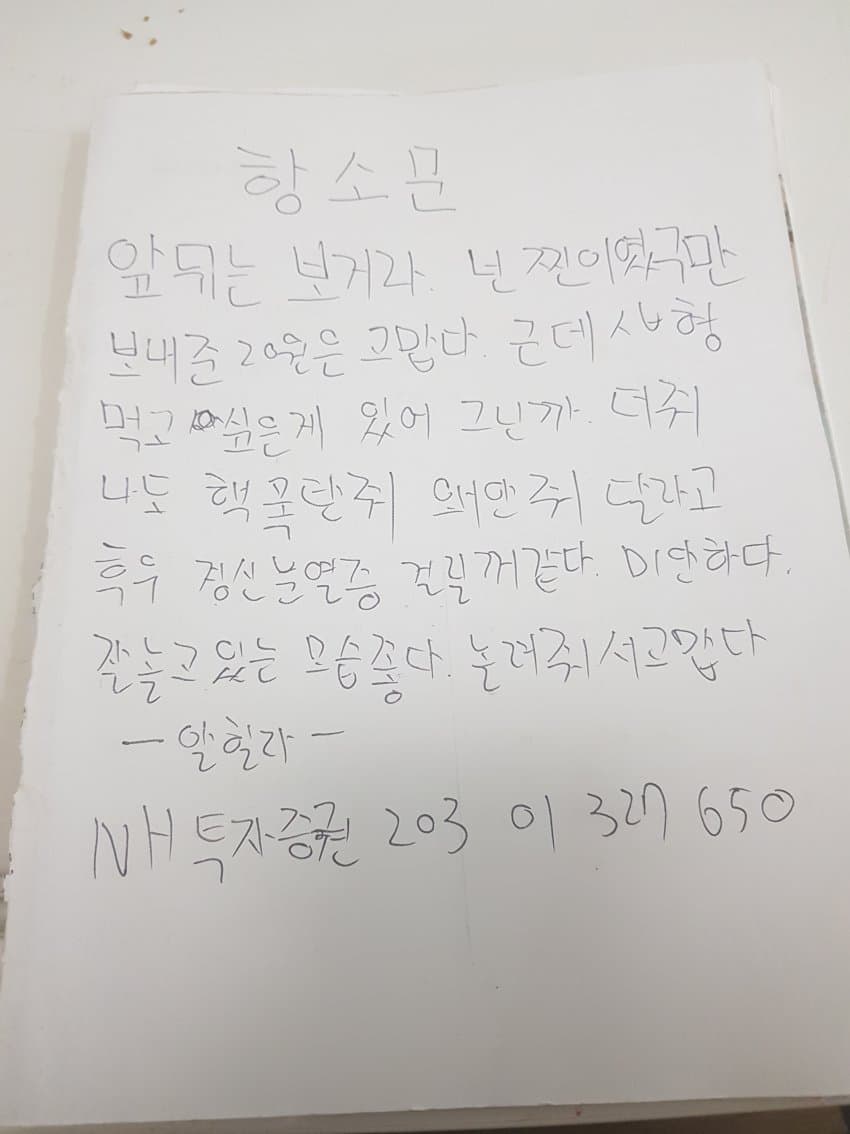 항소문
앞뒤는 보거라. 넌 찐이였국만
보내준 20원은 고맙다. 근데 ㅅㅂ 형
먹고 싶은게 있어 그닌까. 더줘
나도 핵폭탄줘 왜안줘 달라고
흑우 정신분열증 걸릴꺼같다. 미안하다.
잘놀고있는 모습좋다. 놀려줘서고맙다
- 알힐라 -
NH투자증권 203 01 327 650